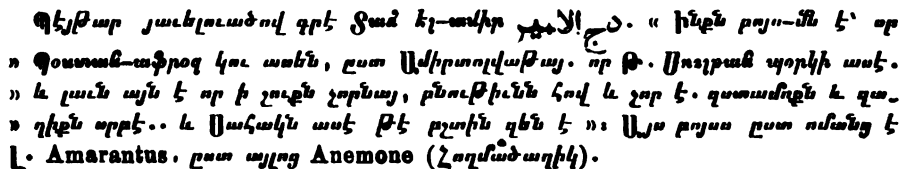 Պէյթար յաւելուածով գրէ Տամ էլ-ամիր . « ինքն բոյս-մն է՝ որ
» Պօստան-աֆրոզ կու ասեն, ըստ Ամիրտոլվաթայ. որ Թ. Սուլթան պորկի ասէ.
» և լաւն այն է որ ի ջուրն չորնայ, բնութիւնն հով և չոր է. զստամոքն և զա_
» ղիքն սրբէ.. և Սահակն ասէ թէ բշտին զեն է »։ Այս բոյսս ըստ ոմանց է
Լ. Amarantus. ըստ այլոց Anemone (Հողմածաղիկ).